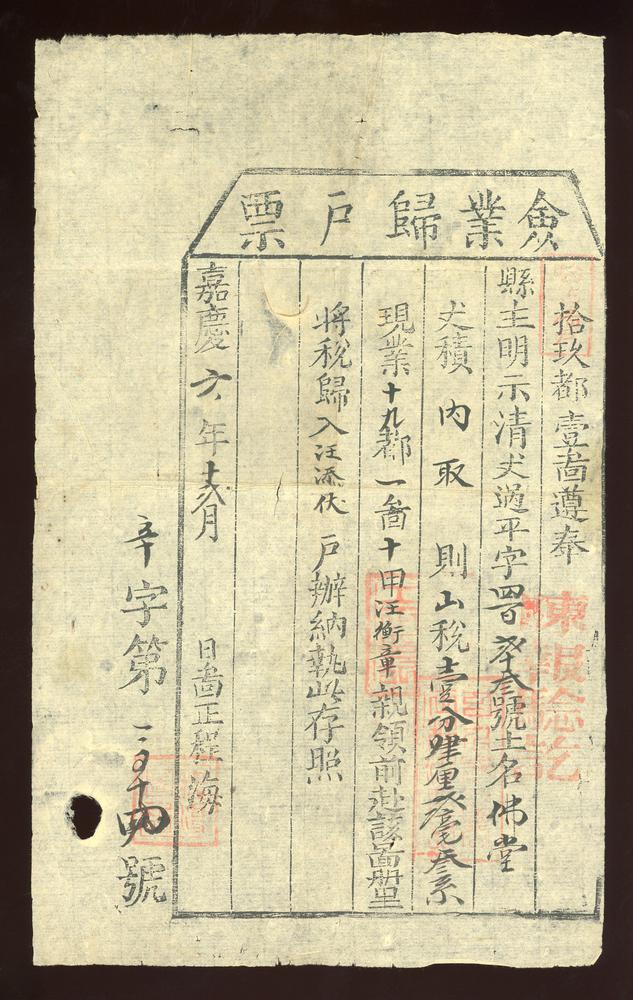 僉業歸戶票
拾玖都壹啚遵奉
縣主明示清丈過平字四百 叁號土名佛堂
丈積 內取 則山稅壹分肆厘 毫叁系
現業十九都一啚十甲汪衡章親領前赴該啚冊里
將稅歸入汪添伏戶辦納執此存照
嘉慶六年十 月 日啚正程海
辛字第 十四號